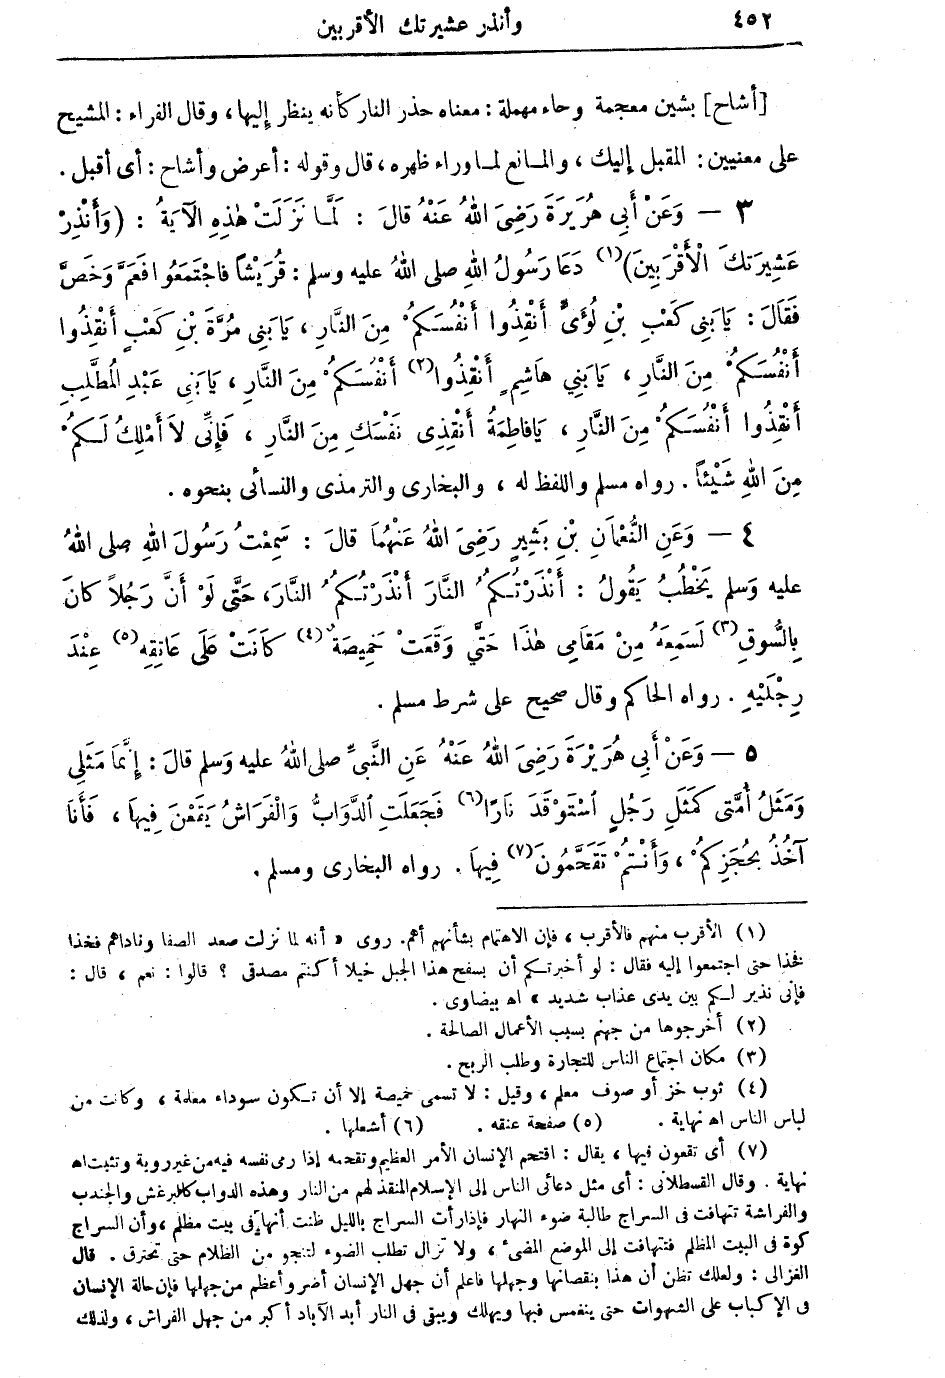 ٤٥٢
وأنذر عشيرتك الأقربين
[أشاح] بشين معجمة وحاء مهملة : معناه حذر النار كأنه ينظر إليها ، وقال الفراء : المشيح
على معنيين : المقبل إليك ، والمـانع لمـا وراء ظهره ، قال وقوله : أعرض وأشاح : أى أقبل .
٣ — وَعَنْ أَبِي هُرَيْرَةَ رَضِىَ اللهُ عَنْهُ قالَ : لَمَّـا نَزَلَتْ هٰذِهِ الآيَةُ : (وَأَنْذِرْ
عَشِيرَتَكَ الْأَقْرَبِينَ)(١) دَعَا رَسُولُ اللهِ صلى اللهُ عليه وسلم : قُرَيْشاً فاجْتَمَعُوا فَعَمَّ وَخَصَّ
فَقَالَ : يَا بَنِى كَعْبِ بْنِ لُؤَىٍّ أَنْقِذُوا أَنْفُسَكُمْ مِنَ النَّارِ ، يَا بَنِى مُرَّةَ بْنِ كَعْبٍ أَنْقِذُوا
أَنْفُسَكُمْ مِنَ النَّارِ ، يَا بَنِي هَاشِمٍ أَنْقِذُوا(٢) أَنْفُسَكُمْ مِنَ النَّارِ ، يَا بَنِى عَبْدِ الْمُطَّلِبِ
أَنْقِذُوا أَنْفُسَكُمْ مِنَ النَّارِ ، يَافاطِمَةُ أَنْقِذِى نَفْسَكِ مِنَ النَّارِ ، فَإِنِّى لاَ أَمْلِكُ لَكُمْ
مِنَ اللهِ شَيْئاً . رواه مسلم واللفظ له ، والبخارى والترمذى والنسائى بنحوه .
٤ — وَعَنِ النُّعْمَانِ بْنِ بَشِيرٍ رَضِىَ اللهُ عَنْهُمَا قالَ : سَمِعْتُ رَسُولَ اللهِ صلى اللهُ
عليه وَسلم يَخْطُبُ يَقُولُ : أَنْذَرْتُكُمُ النَّارَ أَنْذَرْتُكُمُ النَّارَ، حَتَّى لَوْ أَنَّ رَجُلاً كانَ
بِالسُّوقِ(٣) لَسَمِعَهُ مِنْ مَقَامِى هٰذَا حَتَّى وَقَعَتْ خَمِيصَةٌ(٤) كَانَتْ عَلَى عَاتِقِهِ(٥) عِنْدَ
رِجْلَيْهِ . رواه الحاكم وقال صحيح على شرط مسلم .
٥ — وَعَنْ أَبِى هُرَيْرَةَ رَضِىَ اللهُ عَنْهُ عَنِ النَّبِىِّ صلى اللهُ عليه وَسلم قالَ : إِنَّمَا مَثَلِى
وَمَثَلُ أُمَّتِى كَمَثَلِ رَجُلٍ اسْتَوْقَدَ نَارًا(٦) فَجَعَلَتِ الدَّوَابُّ وَالْفَرَاشُ يَقَعْنَ فِيهَا ، فَأَنَا
آخُذُ بِحُجَزِكُمْ ، وَأَنْتُمْ تَقَحَّمُونَ(٧) فِيهَا . رواه البخارى ومسلم .
(١) الأقرب منهم فالأقرب ، فإن الاهتمام بشأنهم أهم. روى « أنه لما نزلت صعد الصفا وناداهم فخذا
فخذا حتى اجتمعوا إليه فقال : لو أخبرتكم أن بسفح هذا الجبل خيلا أكنتم مصدقى ؟ قالوا : نعم ، قال :
فإنى نذير لكم بين يدى عذاب شديد » اه بيضاوى .
(٢) أخرجوها من جهنم بسبب الأعمال الصالحة .
(٣) مكان اجتماع الناس للتجارة وطلب الربح .
(٤) ثوب خز أو صوف معلم ، وقيل : لا تسمى خميصة إلا أن تكون سوداء معلمة ، وكانت من
لباس الناس اه نهاية . (٥) صفحة عنقه . (٦) أشعلها .
(٧) أى تقعون فيها ، يقال : اقتحم الإنسان الأمر العظيم وتقحمه إذا رمى نفسه فيه من غير روية وتثبت اه
نهاية . وقال القسطلانى : أى مثل دعائى الناس إلى الإسلام المنقذ لهم من النار وهذه الدواب كالبرغش والجندب
والفراشة تتهافت فى السراج طالبة ضوء النهار فإذا رأت السراج بالليل ظنت أنها فى بيت مظلم ، وأن السراج
كوة فى البيت المظلم فتتهافت إلى الموضع المضىء ، ولا تزال تطلب الضوء لتنجو من الظلام حتى تحترق . قال
الغزالى : ولعلك تظن أن هذا بنقصانها وجهلها فاعلم أن جهل الإنسان أضر وأعظم من جهلها فإن حالة الإنسان
فى الإكباب على الشهوات حتى ينغمس فيها ويهلك ويبقى فى النار أبد الآباد أكبر من جهل الفراش ، ولذلك